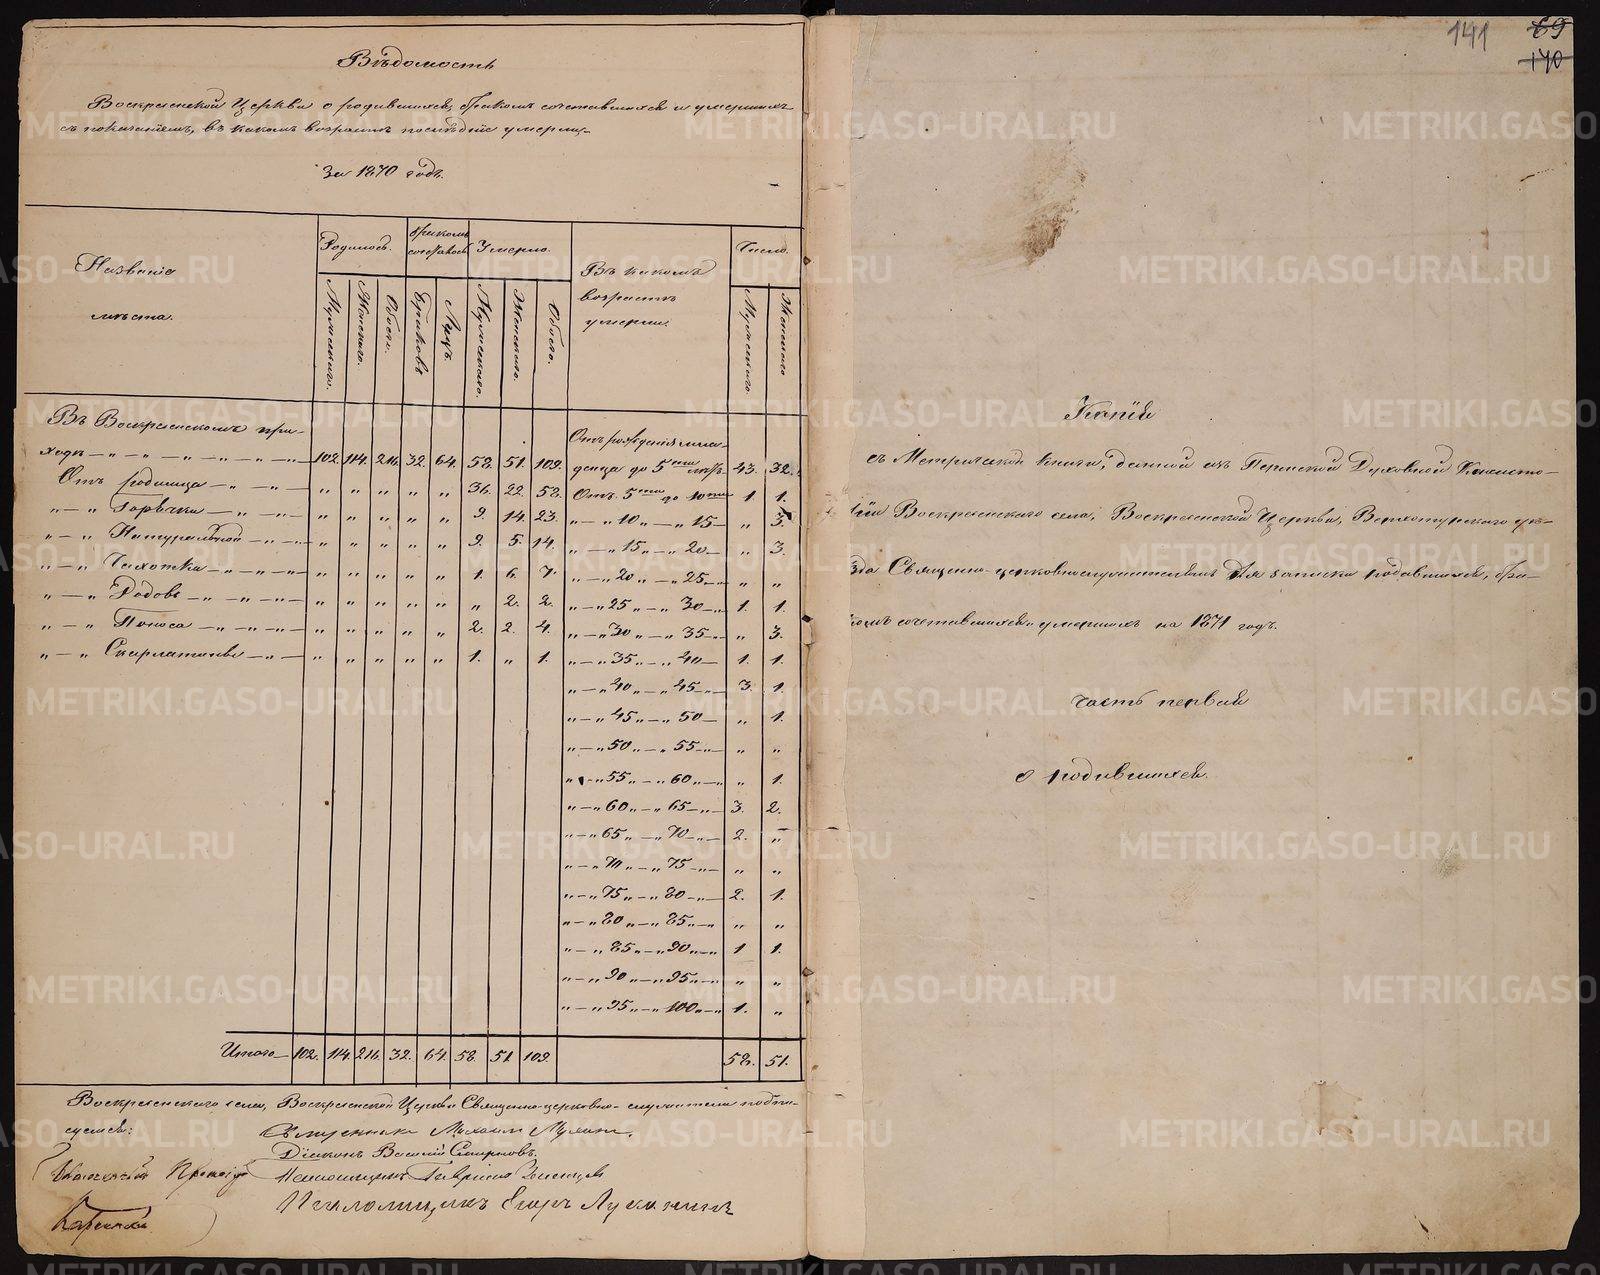 Вѣдомость
Воскресенской Церкви о родившихся, бракомъ сочетавшихся и умершихъ
съ показаніемъ, въ какомъ возрастѣ послѣдніе умерли,
за 1870 годъ.
Названіе мѣста.
Родилось.
Бракомъ сочеталось
Умерло.
Въ какомъ возрастѣ умерли.
Число.
Мужескаго. Женскаго. Обоего. Браковъ Лицъ. Мужескаго. Женскаго. Обоего. Мужескаго Женскаго
Въ Воскресенскомъ при-
ходѣ — 102. 114. 216. 32. 64. 58. 51. 109. Отъ рожденія мла-
денца до 5ти лѣтъ 43. 32.
Отъ родимца — „ „ „ „ „ 36. 22. 58. Отъ 5ти до 10ти 1. 1.
„ — „ Горячки — „ „ „ „ „ 9. 14. 23. „ — „ 10 „ — „ 15 — „ 3.
„ — „ Натуральной — „ „ „ „ „ 9. 5. 14. „ — „ 15 „ — „ 20 — „ 3.
„ — „ Чахотки — „ „ „ „ „ 1. 6. 7. „ — „ 20 „ — „ 25 — „ „
„ — „ Родовъ — „ „ „ „ „ „ 2. 2. „ — „ 25 „ — „ 30 — 1. 1.
„ — „ Поноса — „ „ „ „ „ 2. 2. 4. „ — „ 30 „ — „ 35 — „ 3.
„ — „ Скарлатины — „ „ „ „ „ 1. „ 1. „ — „ 35 „ — „ 40 — 1. 1.
„ — „ 40 „ — „ 45 — 3. 1.
„ — „ 45 „ — „ 50 — „ 1.
„ — „ 50 „ — „ 55 — „ „
„ — „ 55 „ — „ 60 — „ 1.
„ — „ 60 „ — „ 65 — 3. 2.
„ — „ 65 „ — „ 70 — 2. „
„ — „ 70 „ — „ 75 — „ „
„ — „ 75 „ — „ 80 — 2. 1.
„ — „ 80 „ — „ 85 — „ „
„ — „ 85 „ — „ 90 — 1 1.
„ — „ 90 „ — „ 95 — „ „
„ — „ 95 „ — „ 100 — 1. „
Итого — 102. 114. 216. 32. 64. 58. 51. 109. 58. 51.
Воскресенскаго села, Воскресенской Церкви Священно-церковно-служители подпи-
суемся:
Священникъ Михаилъ
Діаконъ Василій Смирновъ.
Гавріилъ
Псаломщикъ Егоръ Луканинъ
141
69
140
Копія
съ Метрической книги, данной изъ Пермской Духовной Консисто-
ріи Воскресенскаго села, Воскресенской Церкви, Верхотурскаго уѣ-
зда Священно-церковнослужителямъ для записки родившихся, бра-
комъ сочетавшихся и умершихъ на 1871 годъ.
часть первая
о родившихся.
METRIKI.GASO-URAL.RU